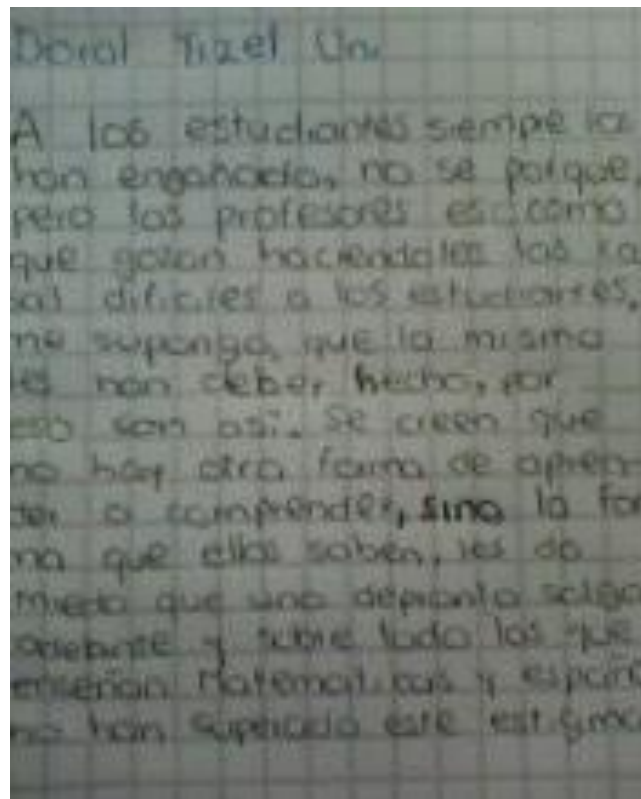 A los estudiantes siempe lo
han engañado, no se porque,
pero los profesores es como
que gozan haciendoles las co
sas dificiles a los estudiantes,
me supongo, que lo mismo
les han deber hecho, por
eso son así. Se creen que
no hay otra forma de apren
der o comprender, sino la for
ma que ellos saben, les da
miedo que uno depronto salga
adelante y sobre todo los que
enseñan Matematicas y españo
no han superado este estigma